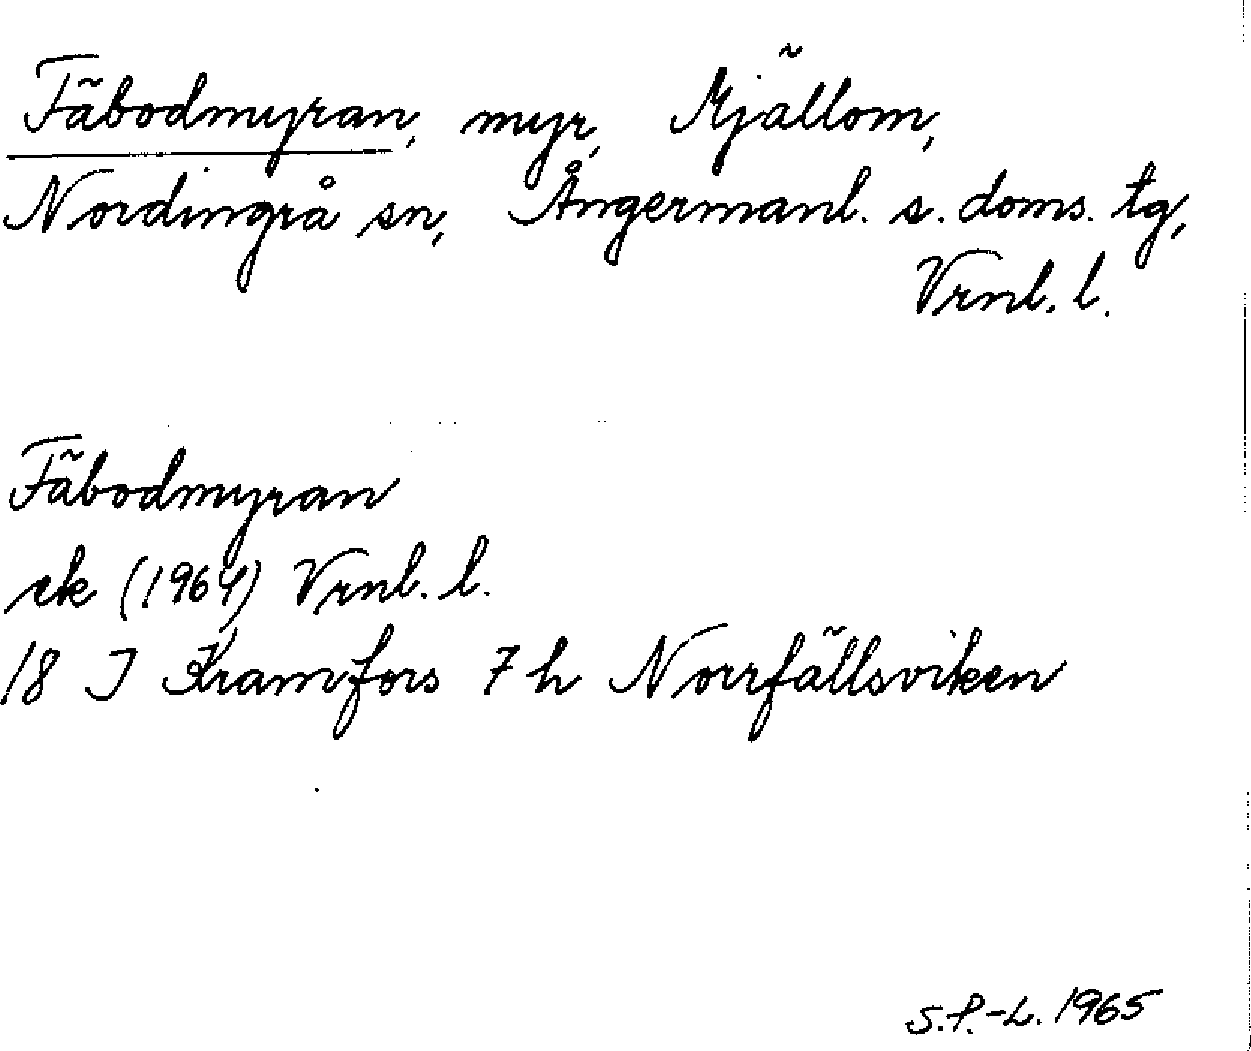 Fäbodmyran, myr, Mjällom,
Nordingrå sn, Ångermanl. s. doms. tg,
Vrnl. l.
Fäbodmyran
ek (1964) Vrnl. l.
18 I Kramfors 7 h Norrfällsviken
S.P.-L. 1965